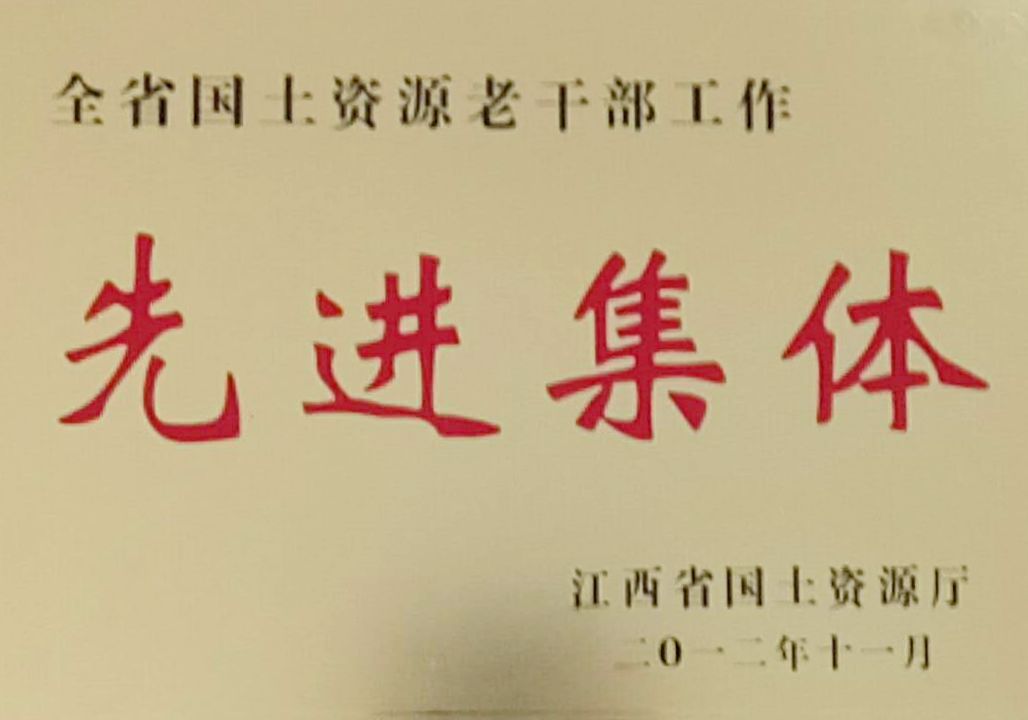 全省国土资源老干部工作
先进集体
江西省国土资源厅
二0一二年十一月